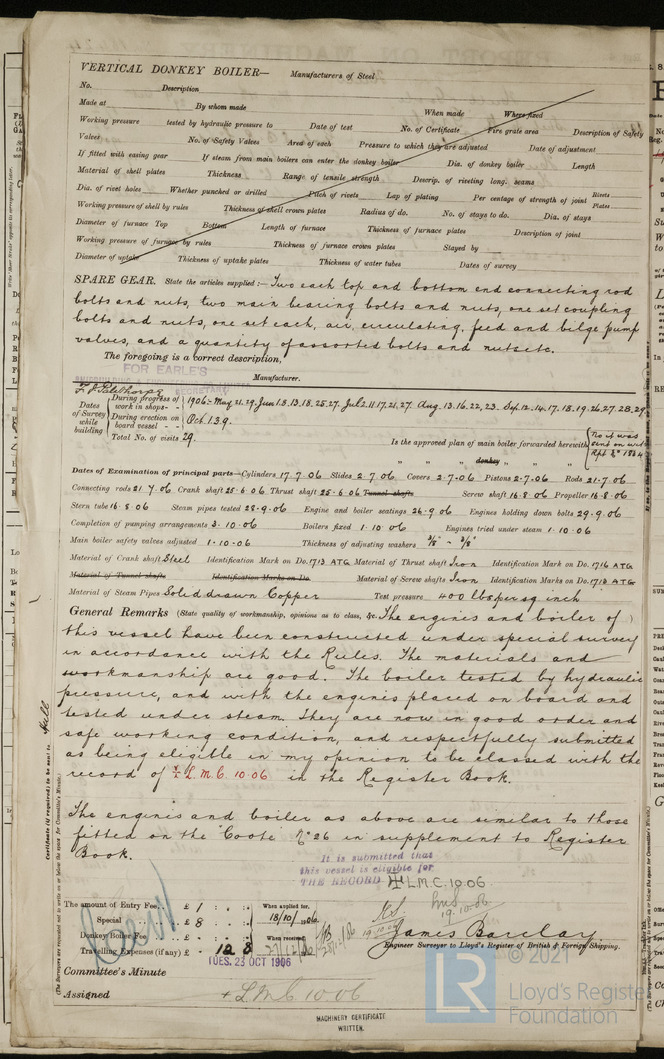 VERTICAL DONKEY BOILER— Manufacturers of Steel
No. Description
Made at By whom made When made Where fixed
Working pressure tested by hydraulic pressure to Date of test No. of Certificate Fire grate area Description of Safety
Valves No. of Safety Valves Area of each Pressure to which they are adjusted Date of adjustment
If fitted with easing gear If steam from main boilers can enter the donkey boiler Dia. of donkey boiler Length
Material of shell plates Thickness Range of tensile strength Descrip. of riveting long. seams
Dia. of rivet holes Whether punched or drilled Pitch of rivets Lap of plating Per centage of strength of joint Rivets Plates
Working pressure of shell by rules Thickness of shell crown plates Radius of do. No. of stays to do. Dia. of stays
Diameter of furnace Top Bottom Length of furnace Thickness of furnace plates Description of joint
Working pressure of furnace by rules Thickness of furnace crown plates Stayed by
Diameter of uptake Thickness of uptake plates Thickness of water tubes Dates of survey
SPARE GEAR. State the articles supplied:— Two each top and bottom end connecting rod
bolts and nuts, two main bearing bolts and nuts, one set coupling
bolts and nuts, one set each, air, circulating, feed and bilge pump
valves, and a quantity of assorted bolts and nuts etc.
The foregoing is a correct description,
FOR EARLE'S
Manufacturer.
SECRETARY
Dates of Survey while building
During progress of work in shops - - 1906 - May 21.29. Jun 1.8.13.18.25.27. Jul 2.11.17.21.27. Aug. 13.16.22,23. Sep 12.14.17.18.19.26.27.28.29
During erection on board vessel - - Oct. 1.3.9.
Total No. of visits 29.
Is the approved plan of main boiler forwarded herewith No it was sent on with
" " " donkey " " "
Dates of Examination of principal parts—Cylinders 17.7.06 Slides 2.7.06 Covers 2.7.06 Pistons 2.7.06 Rods 21.7.06
Connecting rods 21.7.06 Crank shaft 25.6.06 Thrust shaft 25.6.06 Tunnel shafts Screw shaft 16.8.06 Propeller 16.8.06
Stern tube 16.8.06 Steam pipes tested 28.9.06 Engine and boiler seatings 26.9.06 Engines holding down bolts 29.9.06
Completion of pumping arrangements 3.10.06 Boilers fixed 1.10.06 Engines tried under steam 1.10.06
Main boiler safety valves adjusted 1.10.06 Thickness of adjusting washers 3/8" - 3/8"
Material of Crank shaft Steel Identification Mark on Do. 1713 ATG Material of Thrust shaft Iron Identification Mark on Do. 1716 ATG
Material of Tunnel shafts Identification Marks on Do. Material of Screw shafts Iron Identification Marks on Do. 1718 ATG
Material of Steam Pipes Solid drawn Copper Test pressure 400 lbs per sq inch
General Remarks (State quality of workmanship, opinions as to class, &c. The engines and boiler of
this vessel have been constructed under special survey
in accordance with the Rules. The materials and
workmanship are good. The boiler tested by hydraulic
pressure, and with the engines placed on board and
tested under steam. They are now in good order and
safe working condition, and respectfully submitted
as being eligible in my opinion to be classed with the
record of + L.M.C. 10.06 in the Register Book.
The engines and boiler as above are similar to those
fitted on the "Coote" No 26 in supplement to Register
Book.
It is submitted that
this vessel is eligible for
THE RECORD + L.M.C. 10.06.
19.10.06
The amount of Entry Fee.. £ 1 : : When applied for,
Special .. .. £ 8 : : 18/10/1906
Donkey Boiler Fee .. .. £ : : When received,
Travelling Expenses (if any) £ - : 12 : 8
James Barclay
Engineer Surveyor to Lloyd's Register of British & Foreign Shipping.
TUES. 23 OCT 1906
Committee's Minute
Assigned + L.M.C. 10.06
MACHINERY CERTIFICATE
WRITTEN.
Certificate (if required) to be sent to Hull
(The Surveyors are requested not to write on or below the space for Committee's Minute.)
© 2021
LR
Lloyd's Register
Foundation